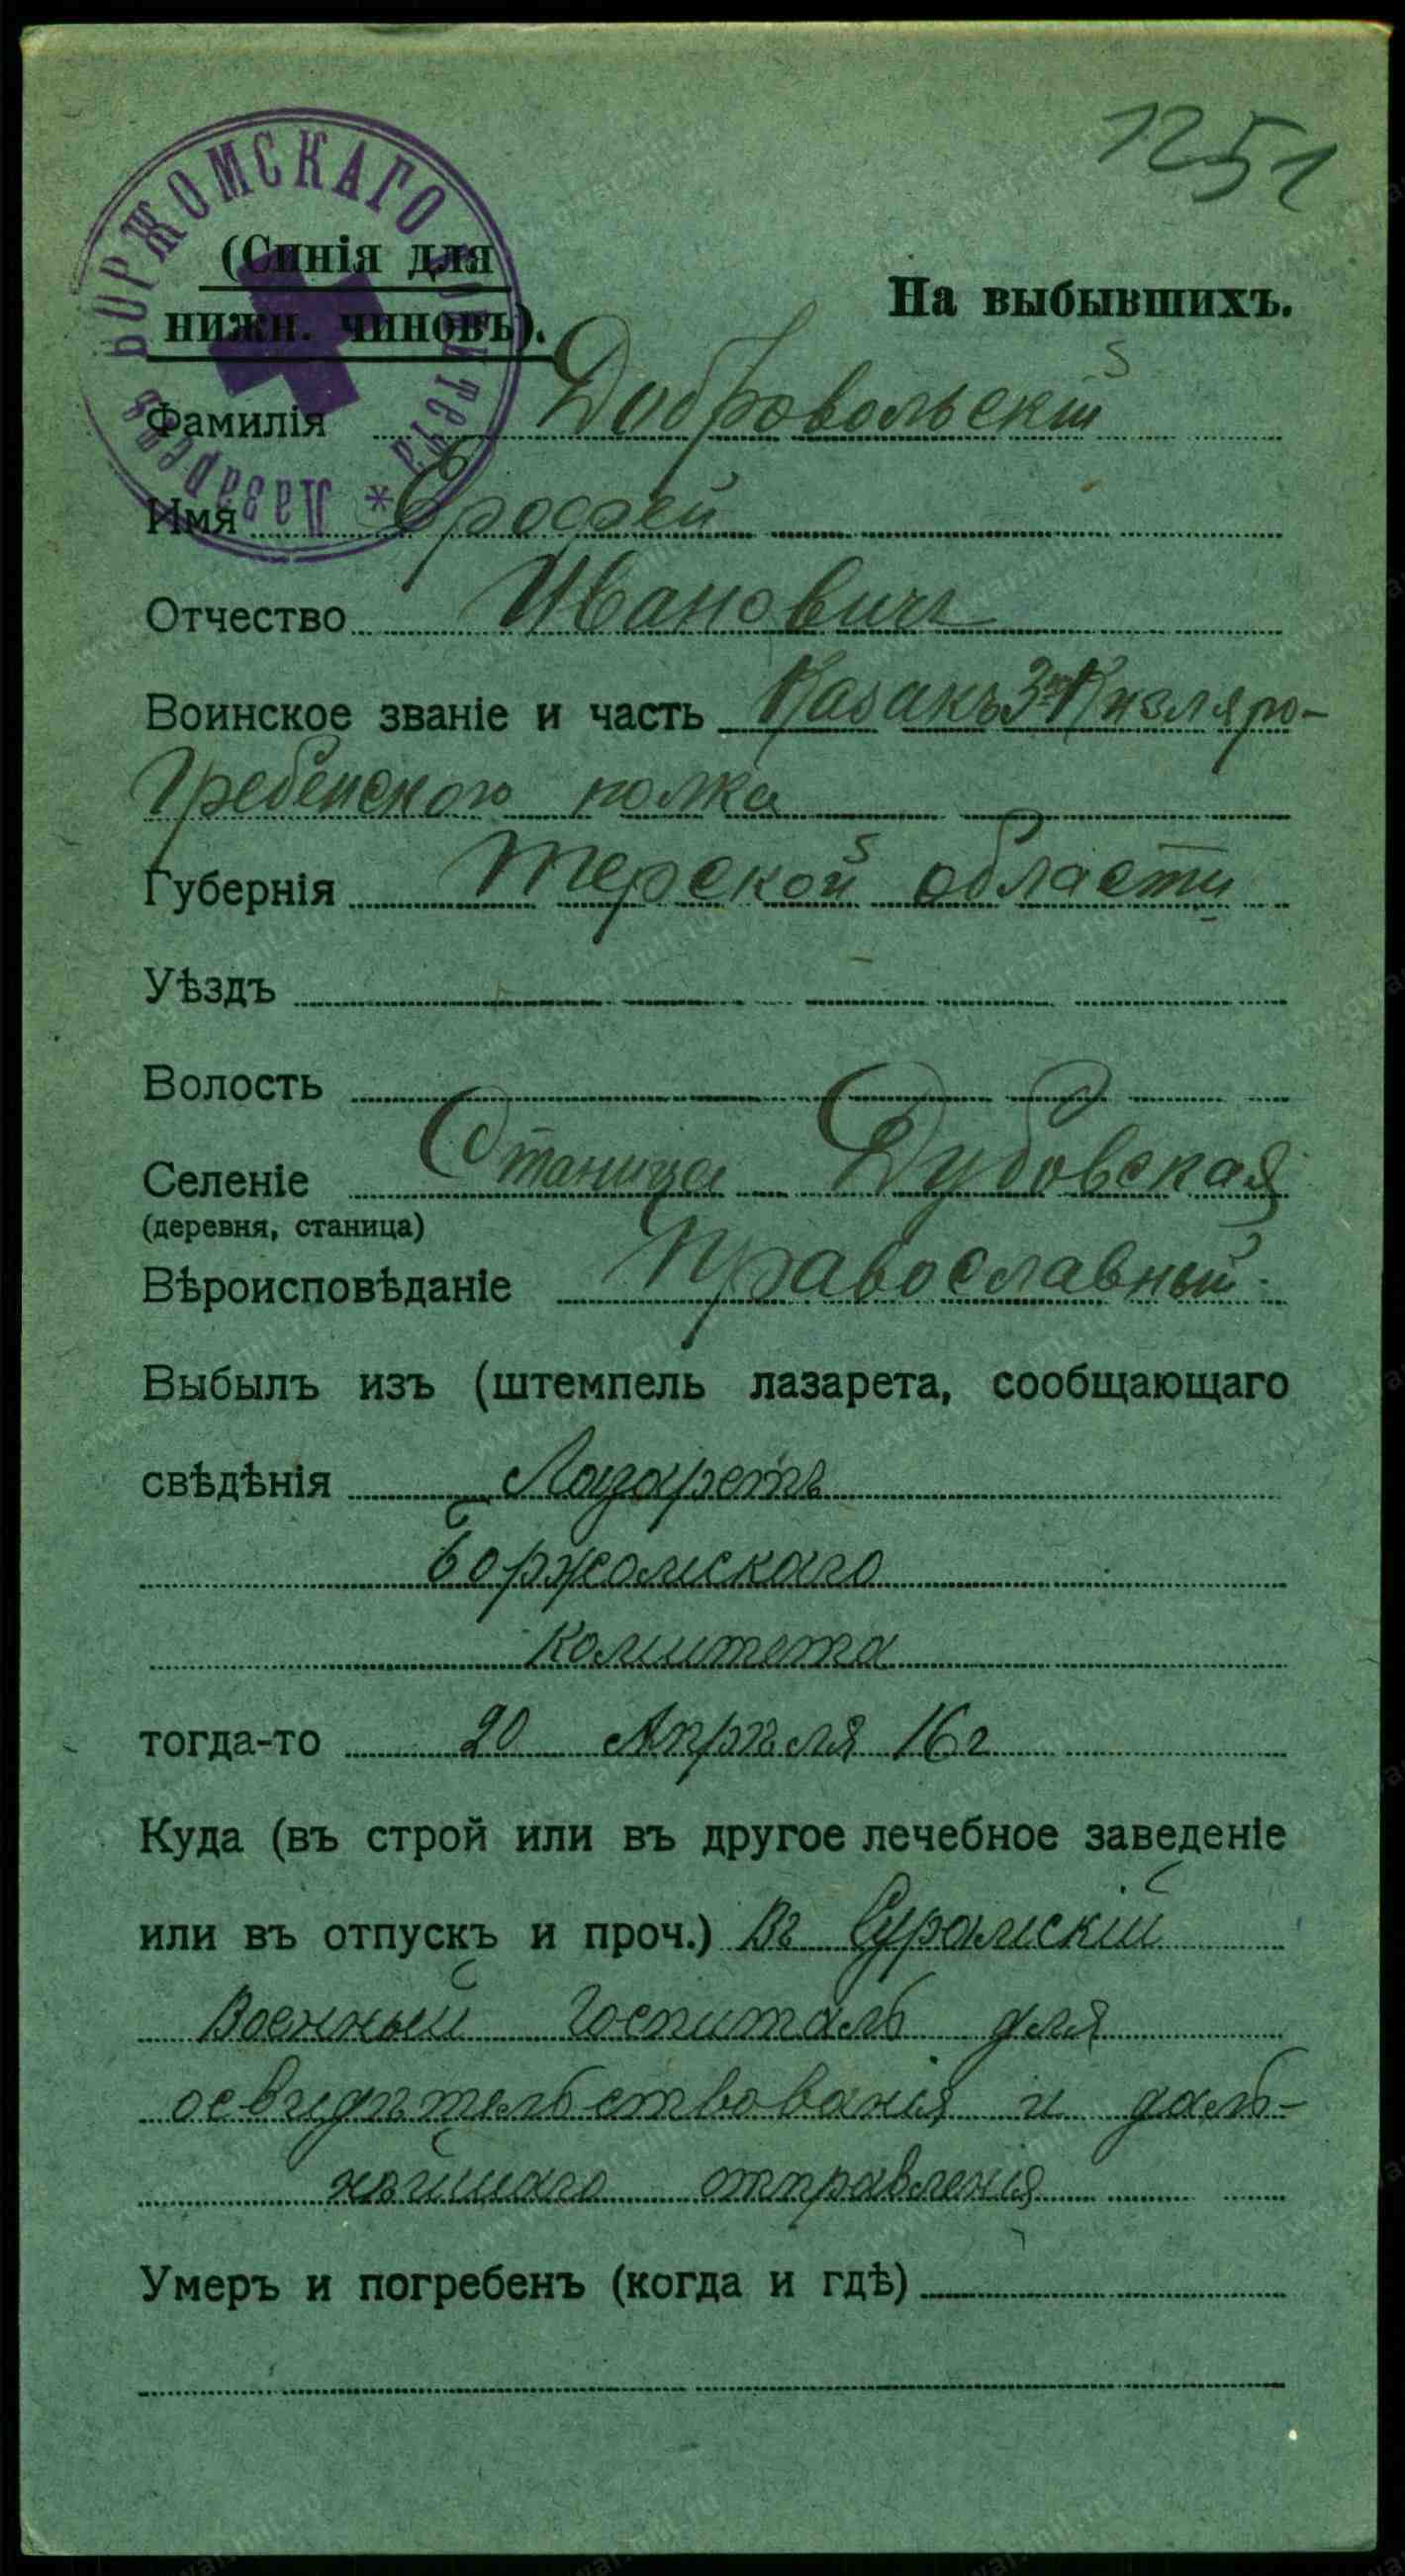 1251
ЛАЗАРЕТЪ БОРЖОМСКАГО КОМИТЕТА *
(Синія для
нижн. чиновъ).
На выбывшихъ.
Фамилія Добровольскій
Имя Ерофей
Отчество Ивановичъ
Воинское званіе и часть Казакъ 3го Кизляро-
Гребенского полка
Губернія Терской области
Уѣздъ
Волость
Селеніе Станица Дубовская
(деревня, станица)
Вѣроисповѣданіе Православный.
Выбылъ изъ (штемпель лазарета, сообщающаго
свѣдѣнія Лазаретъ
Боржомскаго
Комитета
тогда-то 20 Апрѣля 16 г
Куда (въ строй или въ другое лечебное заведеніе
или въ отпускъ и проч.) Въ Сурамскій
Военный Госпиталь для
освидѣтельствованія и даль-
нѣйшаго отправленія
Умеръ и погребенъ (когда и гдѣ)